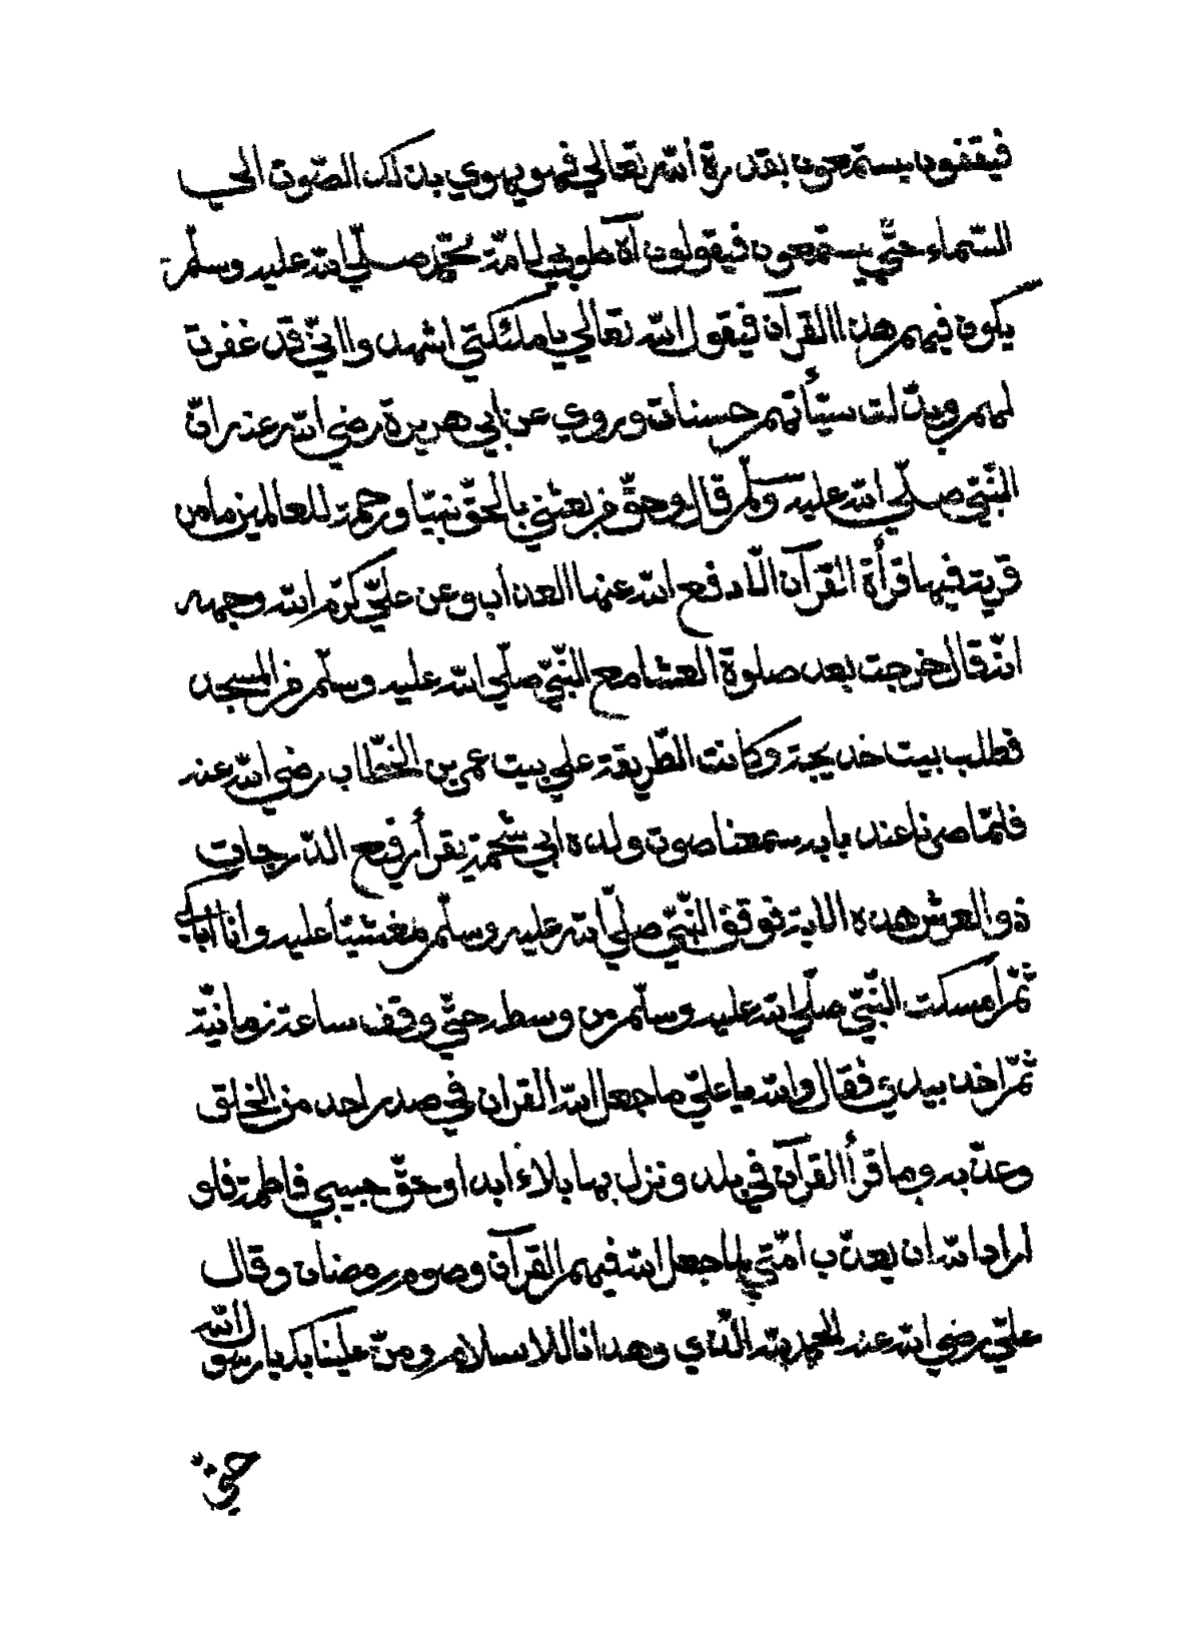 فيقفون يستمعون بقدرة الله تعالى فهو يهوي بذلك الصّوت الى
السّماء حتّي يستمعون فيقولون آه طوبي لامّة محمّد صلّي الله عليه وسلّم
يكون فيهم هذا القرآن فيقول الله تعالي يا ملئكتي اشهدوا انّي قد غفرت
لهم وبدّلت سيّأتهم حسنات وروي عن ابي هريرة رضي الله عنه انّ
النّبّي صلّي الله عليه وسلّم قال وحقّ من بعثني بالحقّ نبيّا ورحمة للعالمين ما من
قرية فيها قرأة القرآن الّا دفع الله عنها العذاب وعن عليّ كرّم الله وجهه
انّه قال خرجت بعد صلوة العشا مع النّبّي صلّي الله عليه وسلّم من المسجد
فطلب بيت خديجة وكانت الطّريقة علي بيت عمر بن الخطّاب رضي الله عنه
فلمّا صرنا عند بابه سمعنا صوت ولده ابي شحمة يقرأ رفيع الدّرجات
ذو العرش هذه الاية فوقف النّبّي صلّي الله عليه وسلّم مغشيّا عليه وأنا اباكي
ثمّ أمسكت النّبّي صلّي الله عليه وسلّم من وسطه حتّي وقف ساعة زمانيّة
ثمّ اخذ بيدي فقال والله يا عليّ ما جعل الله القران في صدر احد من الخلق
وعذّبه وما قرأ القرآن في بلد ونزل بها بلاء ابدا وحقّ حبيبي فاطمة فلو
اراد الله ان يعذّب امّتي لما جعل الله فيهم القرآن وصوم رمضان وقال
عليّ رضي الله عنه الحمد لله الّذي وهدانا للاسلام ومنّ علينا بك يا رسول الله
حتّي